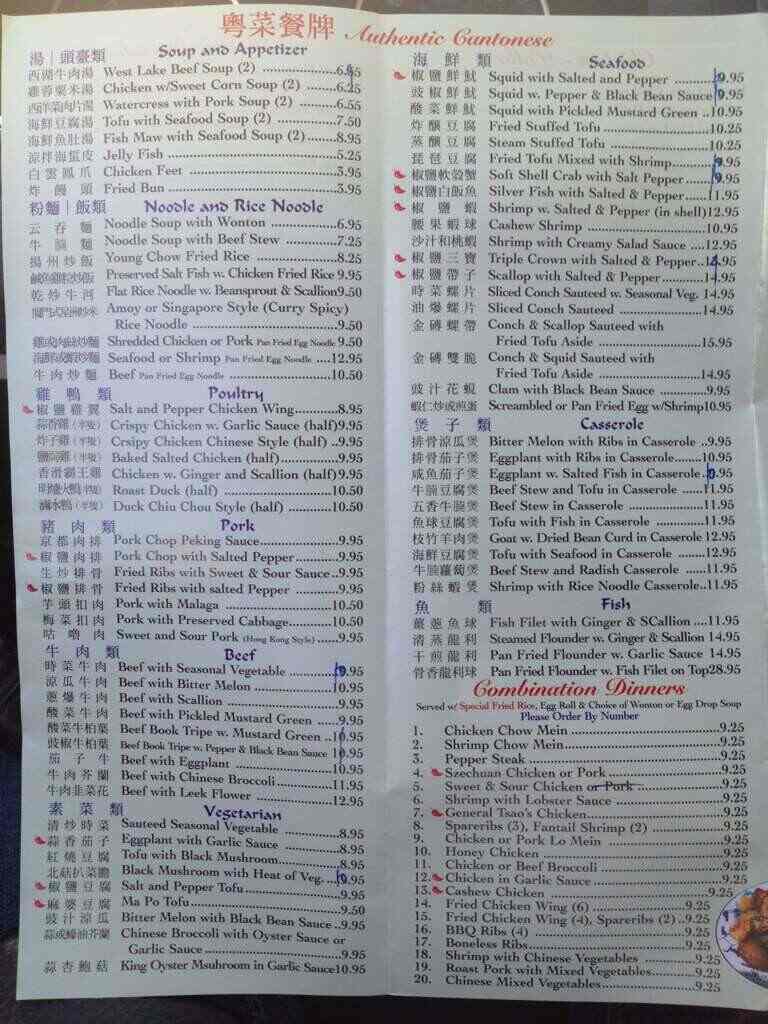 粵菜餐牌 Authentic Cantonese
湯|頭臺類 Soup and Appetizer
西湖牛肉湯 West Lake Beef Soup (2) 6.95
雞蓉粟米湯 Chicken w/Sweet Corn Soup (2) 6.25
西洋菜肉片湯 Watercress with Pork Soup (2) 6.55
海鮮豆腐湯 Tofu with Seafood Soup (2) 7.50
海鮮魚肚湯 Fish Maw with Seafood Soup (2) 8.95
涼拌海蜇皮 Jelly Fish 5.25
白雲鳳爪 Chicken Feet 3.95
炸饅頭 Fried Bun 3.95
粉麵|飯類 Noodle and Rice Noodle
云吞麵 Noodle Soup with Wonton 6.95
牛腩麵 Noodle Soup with Beef Stew 7.25
揚州炒飯 Young Chow Fried Rice 8.25
鹹魚雞粒炒飯 Preserved Salt Fish w. Chicken Fried Rice 9.95
乾炒牛河 Flat Rice Noodle w. Beansprout & Scallion 9.50
廈門或星洲炒米 Amoy or Singapore Style (Curry Spicy)
Rice Noodle 9.50
雞或肉絲炒麵 Shredded Chicken or Pork Pan Fried Egg Noodle 9.50
海鮮或蝦炒麵 Seafood or Shrimp Pan Fried Egg Noodle 12.95
牛肉炒麵 Beef Pan Fried Egg Noodle 10.50
雞鴨類 Poultry
椒鹽雞翼 Salt and Pepper Chicken Wing 8.95
蒜香雞(半隻) Crispy Chicken w. Garlic Sauce (half) 9.95
炸子雞(半隻) Crsipy Chicken Chinese Style (half) 9.95
鹽焗雞(半隻) Baked Salted Chicken (half) 9.95
香滑霸王雞 Chicken w. Ginger and Scallion (half) 9.95
明爐火鴨(半隻) Roast Duck (half) 10.50
滷水鴨(半隻) Duck Chiu Chou Style (half) 10.50
豬肉類 Pork
京都肉排 Pork Chop Peking Sauce 9.95
椒鹽肉排 Pork Chop with Salted Pepper 9.95
生炒排骨 Fried Ribs with Sweet & Sour Sauce 9.95
椒鹽排骨 Fried Ribs with salted Pepper 9.95
芋頭扣肉 Pork with Malaga 10.50
梅菜扣肉 Pork with Preserved Cabbage 10.50
咕嚕肉 Sweet and Sour Pork (Hong Kong Style) 9.95
牛肉類 Beef
時菜牛肉 Beef with Seasonal Vegetable 9.95
涼瓜牛肉 Beef with Bitter Melon 10.95
蔥爆牛肉 Beef with Scallion 9.95
酸菜牛肉 Beef with Pickled Mustard Green 9.95
酸菜牛柏葉 Beef Book Tripe w. Mustard Green 10.95
豉椒牛柏葉 Beef Book Tripe w. Pepper & Black Bean Sauce 10.95
茄子牛 Beef with Eggplant 10.95
牛肉芥蘭 Beef with Chinese Broccoli 11.95
牛肉韭菜花 Beef with Leek Flower 12.95
素菜類 Vegetarian
清炒時菜 Sauteed Seasonal Vegetable 8.95
蒜香茄子 Eggplant with Garlic Sauce 8.95
紅燒豆腐 Tofu with Black Mushroom 8.95
北菇扒菜膽 Black Mushroom with Heat of Veg. 9.95
椒鹽豆腐 Salt and Pepper Tofu 9.95
麻婆豆腐 Ma Po Tofu 9.50
豉汁涼瓜 Bitter Melon with Black Bean Sauce 9.95
蒜或蠔油芥蘭 Chinese Broccoli with Oyster Sauce or
Garlic Sauce 9.95
蒜杏鮑菇 King Oyster Msuhroom in Garlic Sauce 10.95
海鮮類 Seafood
椒鹽鮮魷 Squid with Salted and Pepper 9.95
豉椒鮮魷 Squid w. Pepper & Black Bean Sauce 9.95
酸菜鮮魷 Squid with Pickled Mustard Green 10.95
炸釀豆腐 Fried Stuffed Tofu 10.25
蒸釀豆腐 Steam Stuffed Tofu 10.25
琵琶豆腐 Fried Tofu Mixed with Shrimp 9.95
椒鹽軟殼蟹 Soft Shell Crab with Salt Pepper 9.95
椒鹽白飯魚 Silver Fish with Salted & Pepper 11.95
椒鹽蝦 Shrimp w. Salted & Pepper (in shell) 12.95
腰果蝦球 Cashew Shrimp 10.95
沙汁和桃蝦 Shrimp with Creamy Salad Sauce 12.95
椒鹽三寶 Triple Crown with Salted & Pepper 14.95
椒鹽帶子 Scallop with Salted & Pepper 14.95
時菜螺片 Sliced Conch Sauteed w. Seasonal Veg. 14.95
油爆螺片 Sliced Conch Sauteed 14.95
金磚螺帶 Conch & Scallop Sauteed with
Fried Tofu Aside 15.95
金磚雙脆 Conch & Squid Sauteed with
Fried Tofu Aside 14.95
豉汁花蜆 Clam with Black Bean Sauce 9.95
蝦仁炒或煎蛋 Screambled or Pan Fried Egg w/Shrimp 10.95
煲子類 Casserole
排骨涼瓜煲 Bitter Melon with Ribs in Casserole 9.95
排骨茄子煲 Eggplant with Ribs in Casserole 10.95
咸魚茄子煲 Eggplant w. Salted Fish in Casserole 9.95
牛腩豆腐煲 Beef Stew and Tofu in Casserole 11.95
五香牛腩煲 Beef Stew in Casserole 11.95
魚球豆腐煲 Tofu with Fish in Casserole 11.95
枝竹羊肉煲 Goat w. Dried Bean Curd in Casserole 12.95
海鮮豆腐煲 Tofu with Seafood in Casserole 12.95
牛腩蘿蔔煲 Beef Stew and Radish Casserole 11.95
粉絲蝦煲 Shrimp with Rice Noodle Casserole 11.95
魚類 Fish
薑蔥魚球 Fish Filet with Ginger & SCallion 11.95
清蒸龍利 Steamed Flounder w. Ginger & Scallion 14.95
干煎龍利 Pan Fried Flounder w. Garlic Sauce 14.95
骨香龍利球 Pan Fried Flounder w. Fish Filet on Top 28.95
Combination Dinners
Served w/ Special Fried Rice, Egg Roll & Choice of Wonton or Egg Drop Soup
Please Order By Number
1. Chicken Chow Mein 9.25
2. Shrimp Chow Mein 9.25
3. Pepper Steak 9.25
4. Szechuan Chicken or Pork 9.25
5. Sweet & Sour Chicken or Pork 9.25
6. Shrimp with Lobster Sauce 9.25
7. General Tsao's Chicken 9.25
8. Spareribs (3), Fantail Shrimp (2) 9.25
9. Chicken or Pork Lo Mein 9.25
10. Honey Chicken 9.25
11. Chicken or Beef Broccoli 9.25
12. Chicken in Garlic Sauce 9.25
13. Cashew Chicken 9.25
14. Fried Chicken Wing (6) 9.25
15. Fried Chicken Wing (4), Spareribs (2) 9.25
16. BBQ Ribs (4) 9.25
17. Boneless Ribs 9.25
18. Shrimp with Chinese Vegetables 9.25
19. Roast Pork with Mixed Vegetables 9.25
20. Chinese Mixed Vegetables 9.25